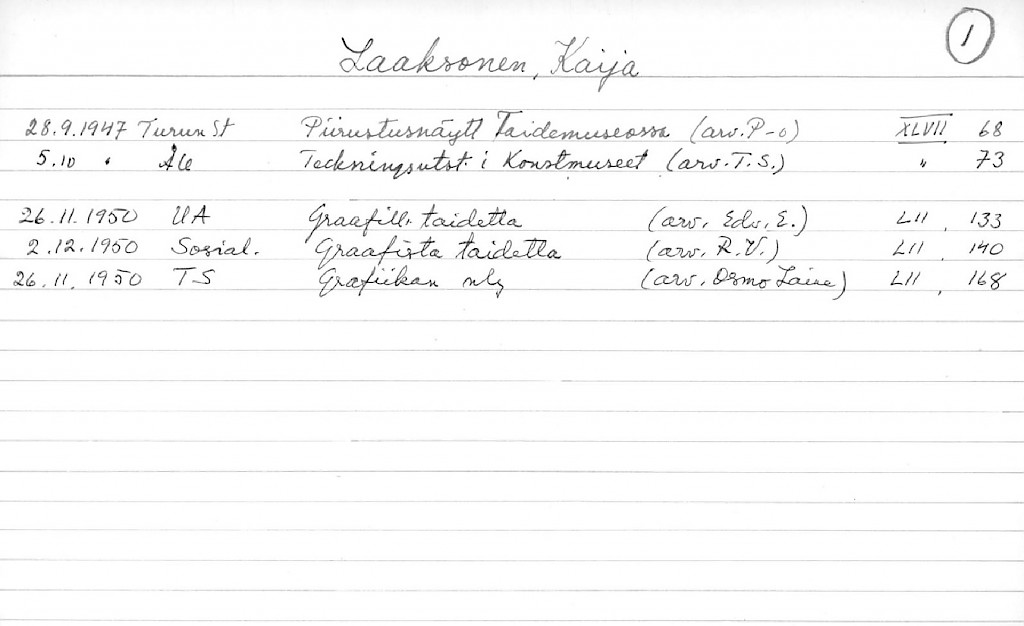 1
Laaksonen, Kaija
28.9.1947 Turun St Piirustusnäytt Taidemuseossa (arv. P-o) XLVII 68
5.10 " Åu Teckningsutst. i Konstmuseet (arv. T.S.) " 73
26.11.1950 UA Graafill. taidetta (arv. Edv. E.) LII, 133
2.12.1950 Sosial. Graafista taidetta (arv. R.V.) LII, 140
26.11.1950 TS Grafiikan nly (arv. Osmo Laine) LII, 168